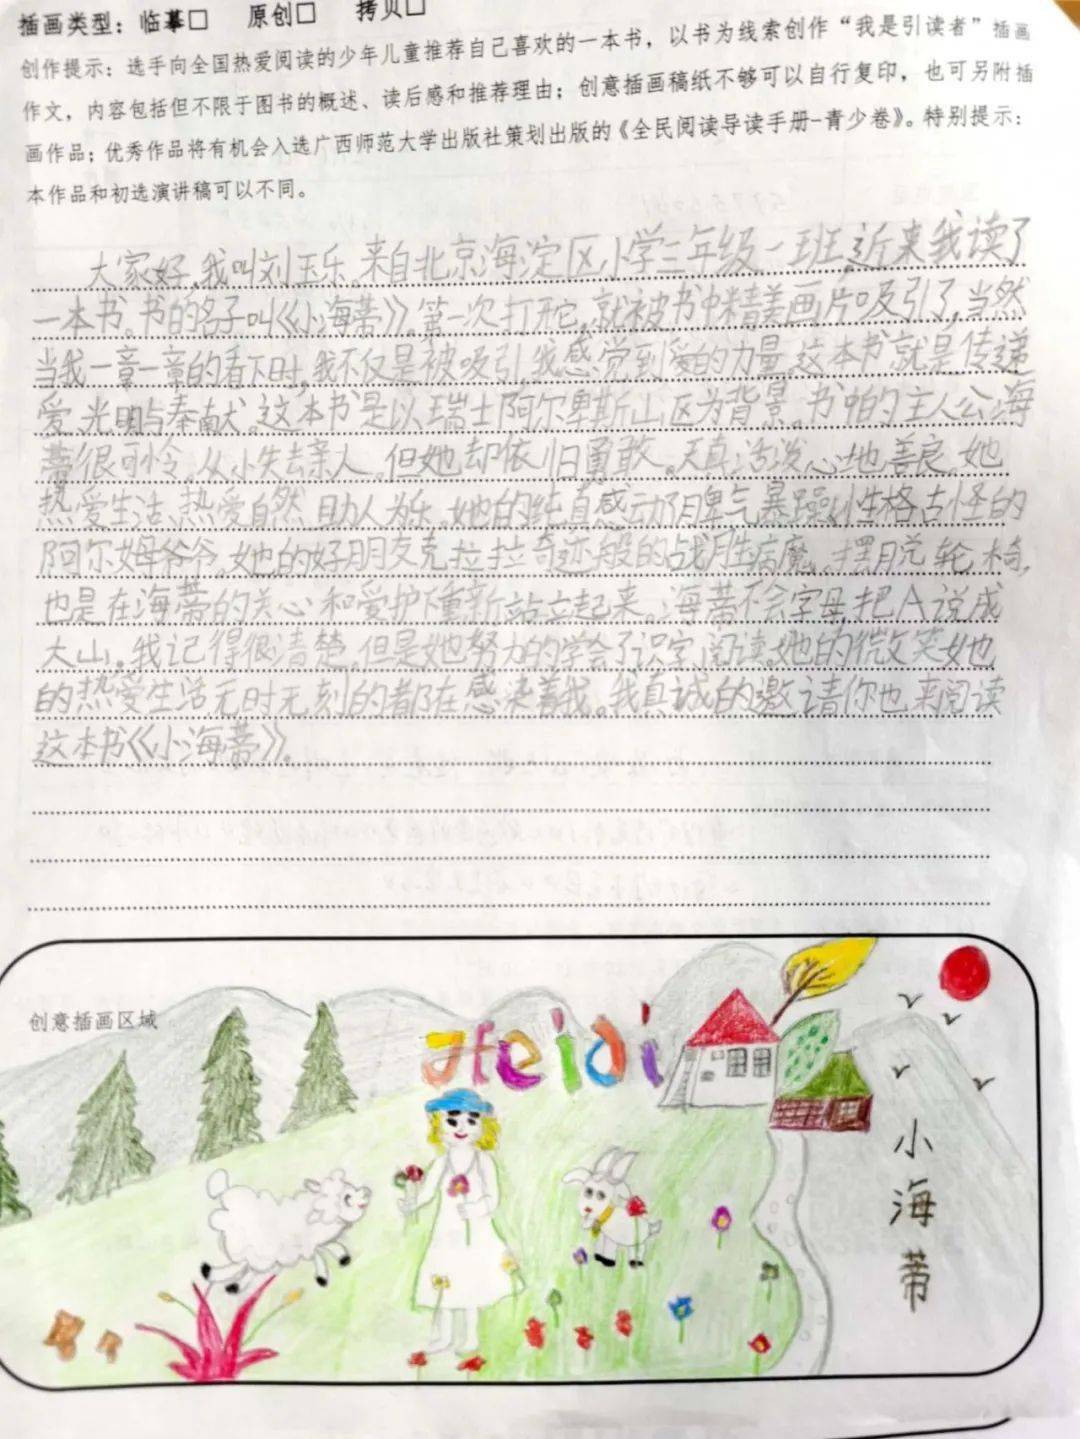 插画类型：临摹□ 原创□ 拷贝□
创作提示：选手向全国热爱阅读的少年儿童推荐自己喜欢的一本书，以书为线索创作“我是引读者”插画
作文，内容包括但不限于图书的概述、读后感和推荐理由；创意插画稿纸不够可以自行复印，也可另附插
画作品；优秀作品将有机会入选广西师范大学出版社策划出版的《全民阅读导读手册-青少卷》。特别提示：
本作品和初选演讲稿可以不同。
大家好，我叫刘玉乐。来自北京海淀区小学三年级一班，近来我读了
一本书。书的名子叫《小海蒂》。第一次打开它，就被书中精美画片吸引了，当然
当我一章一章的看下时，我不仅是被吸引，我感觉到爱的力量。这本书就是传递
爱、光明与奉献。这本书是以瑞士阿尔卑斯山区为背景。书中的主人公海
蒂很可怜。从小失去亲人。但她却依旧勇敢。天真活泼，心地善良。她
热爱生活、热爱自然，助人为乐。她的纯真感动脾气暴躁，性格古怪的
阿尔姆爷爷。她的好朋友克拉拉奇迹般的战胜病魔。摆脱轮椅，
也是在海蒂的关心和爱护下重新站立起来。海蒂不会字母，把A说成
大山。我记得很清楚。但是她努力的学会了识字，阅读。她的微笑她
的热爱生活无时无刻的都在感染着我。我真诚的邀请你也来阅读
这本书《小海蒂》。
创意插画区域
Heidi
小海蒂